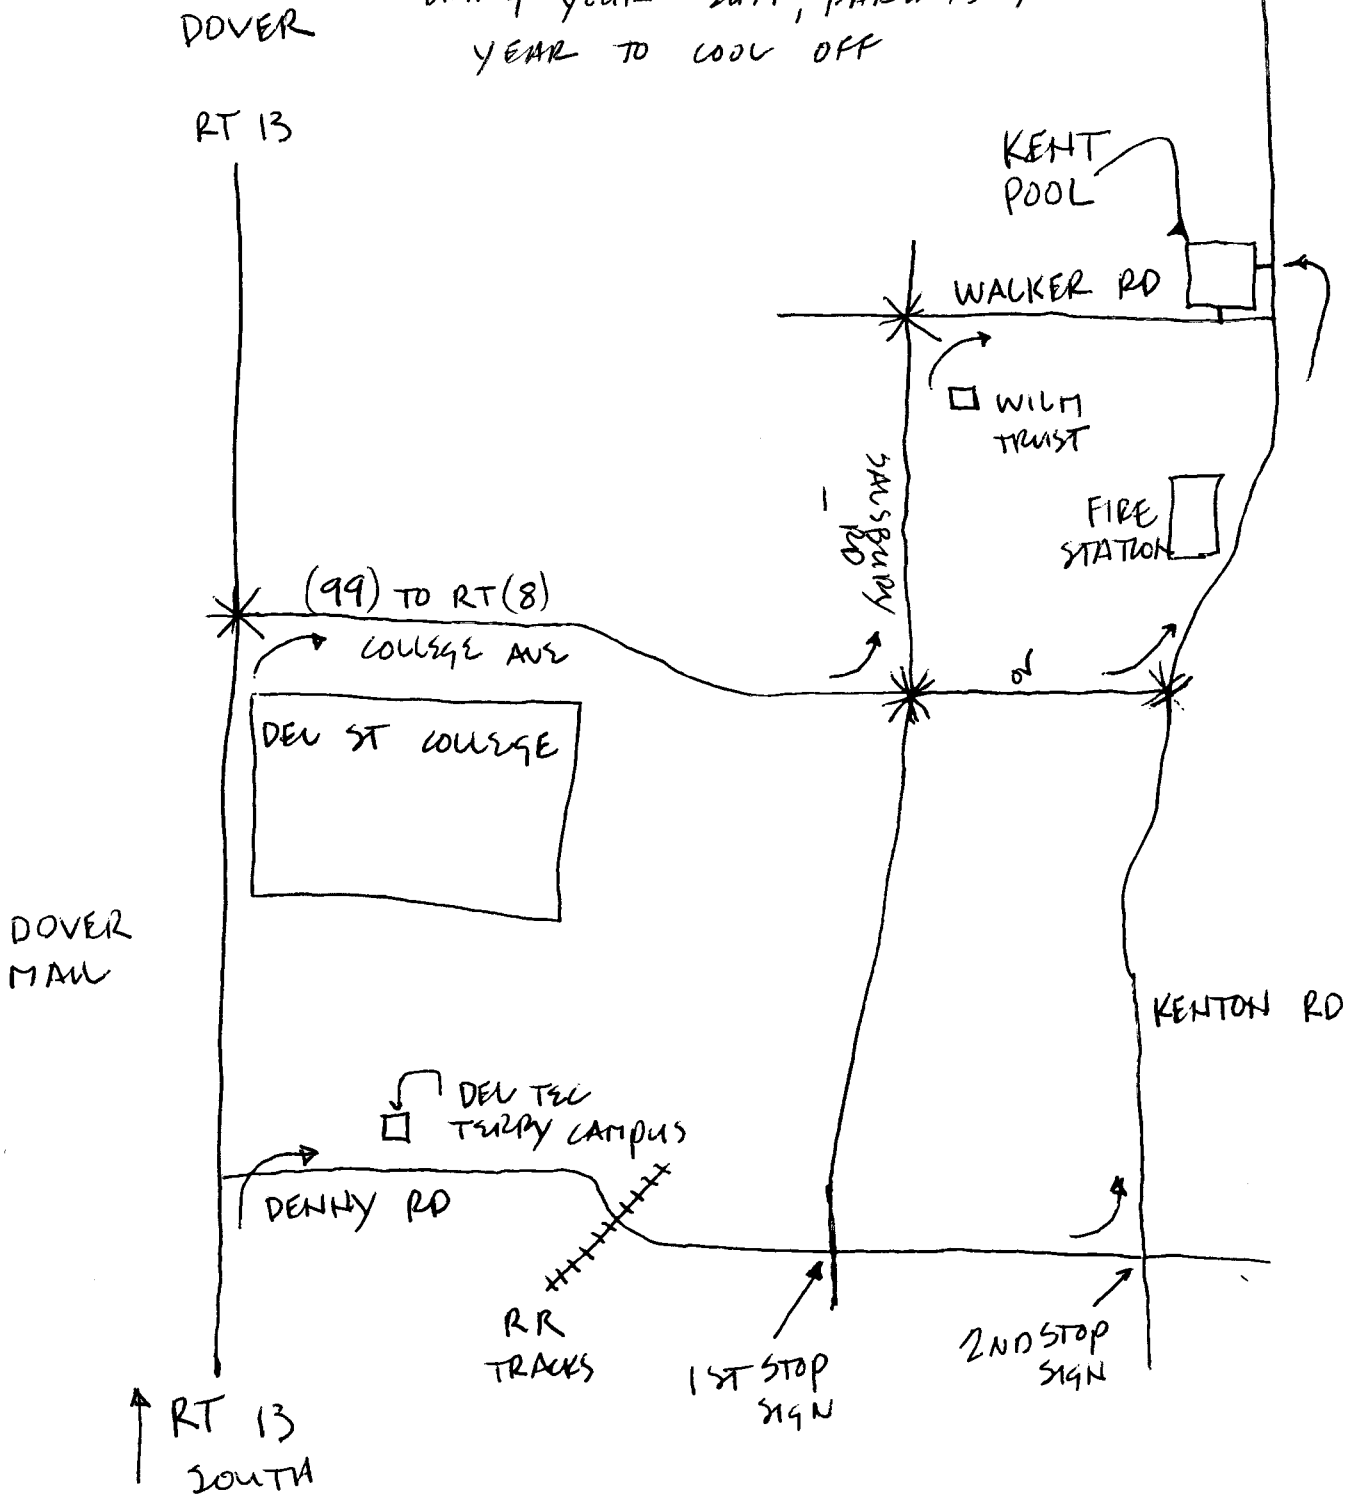 DOVER
YOUR
YEAR TO COOL OFF
RT 13
KENT
POOL
WALKER RD
WILM
TRUST
SALSBURY
RD
FIRE
STATION
(99) TO RT (8)
COLLEGE AVE
or
DEL ST COLLEGE
DOVER
MALL
KENTON RD
DEL TEC
TERRY CAMPUS
DENNY RD
RR
TRACKS
1ST STOP
SIGN
2ND STOP
SIGN
RT 13
SOUTH